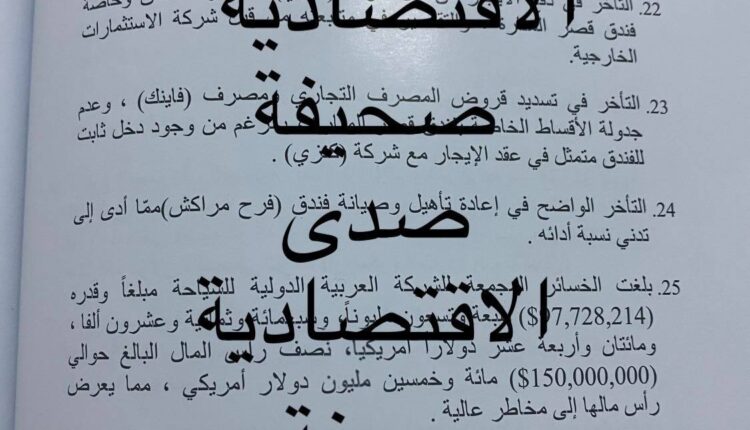 22. التأخر في
فندق قصر من قبل شركة الاستثمارات
الخارجية.
23. التأخر في تسديد قروض المصرف التجاري ومصرف (فاينك) ، وعدم
جدولة الأقساط رغم من وجود دخل ثابت
للفندق متمثل في عقد الإيجار مع شركة
24. التأخر الواضح في إعادة تأهيل وصيانة فندق (فرح مراكش)ممّا أدى إلى
تدني نسبة أدائه .
25. بلغت الخسائر المجمعة للشركة العربية الدولية للسياحة مبلغاً وقدره
($97,728,214) سبعة وتسعون مليوناً، وسبعمائة وثمانية وعشرون ألفا ،
ومائتان وأربعة عشر دولاراً أمريكيا، نصف رأس المال البالغ حوالي
($150,000,000) مائة وخمسين مليون دولار أمريكي ، مما يعرض
رأس مالها إلى مخاطر عالية .
الاقتصادية
صحيفة
صدى
الاقتصادية